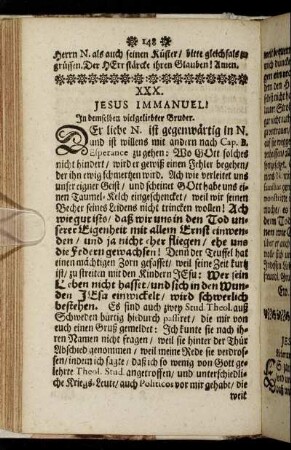 148
Herrn N. als auch seinen Küster / bitte gleichsfals zu
grüssen. Der HErr stärcke ihren Glauben! Amen.
XXX.
JESUS IMMANUEL!
In demselben vielgeliebter Bruder.
DEr liebe N. ist gegenwärtig in N.
und ist willens mit andern nach Cap. B.
Esperance zu gehen: Wo GOtt solches
nicht hindert / wird er gewiß einen Fehler begehen /
der ihn ewig schmertzen wird. Ach wie verleitet uns
unser eigner Geist / und scheinet GOtt habe uns ei-
nen Taumel-Kelch eingeschencket / weil wir seinen
Becher seines Leidens nicht trincken wollen! Ach
wie gut ists / daß wir uns in den Tod un-
serer Eigenheit mit allem Ernst einwen-
den / und ja nicht eher fliegen / ehe uns
die Federn gewachsen! Denn der Teuffel hat
einen mächtigen Zorn gefasset / weil seine Zeit kurtz
ist / zu streiten mit den Kindern JEsu: Wer sein
Leben nicht hasset / und sich in den Wun-
den JEsu einwickelt / wird schwerlich
bestehen. Es sind auch zwey Stud. Theol. auß
Schweden bürtig hiedurch passiret / die mir von
euch einen Gruß gemeldet: Ich kunte sie nach ih-
ren Namen nicht fragen / weil sie hinter der Thür
Abschied genommen / weil meine Rede sie verdros-
sen / indem ich sagte / daß ich so wenig von Gott ge-
lehrte Theol. Stud. angetroffen / und unterschiedli-
che Kriegs-Leute / auch Politicos vor mir gehabt / die
weit